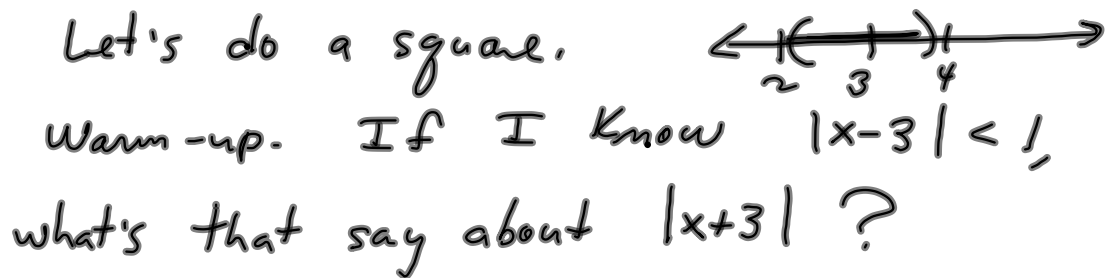 Let's do a square.
2 3 4
Warm-up. If I know |x-3| < 1,
what's that say about |x+3| ?